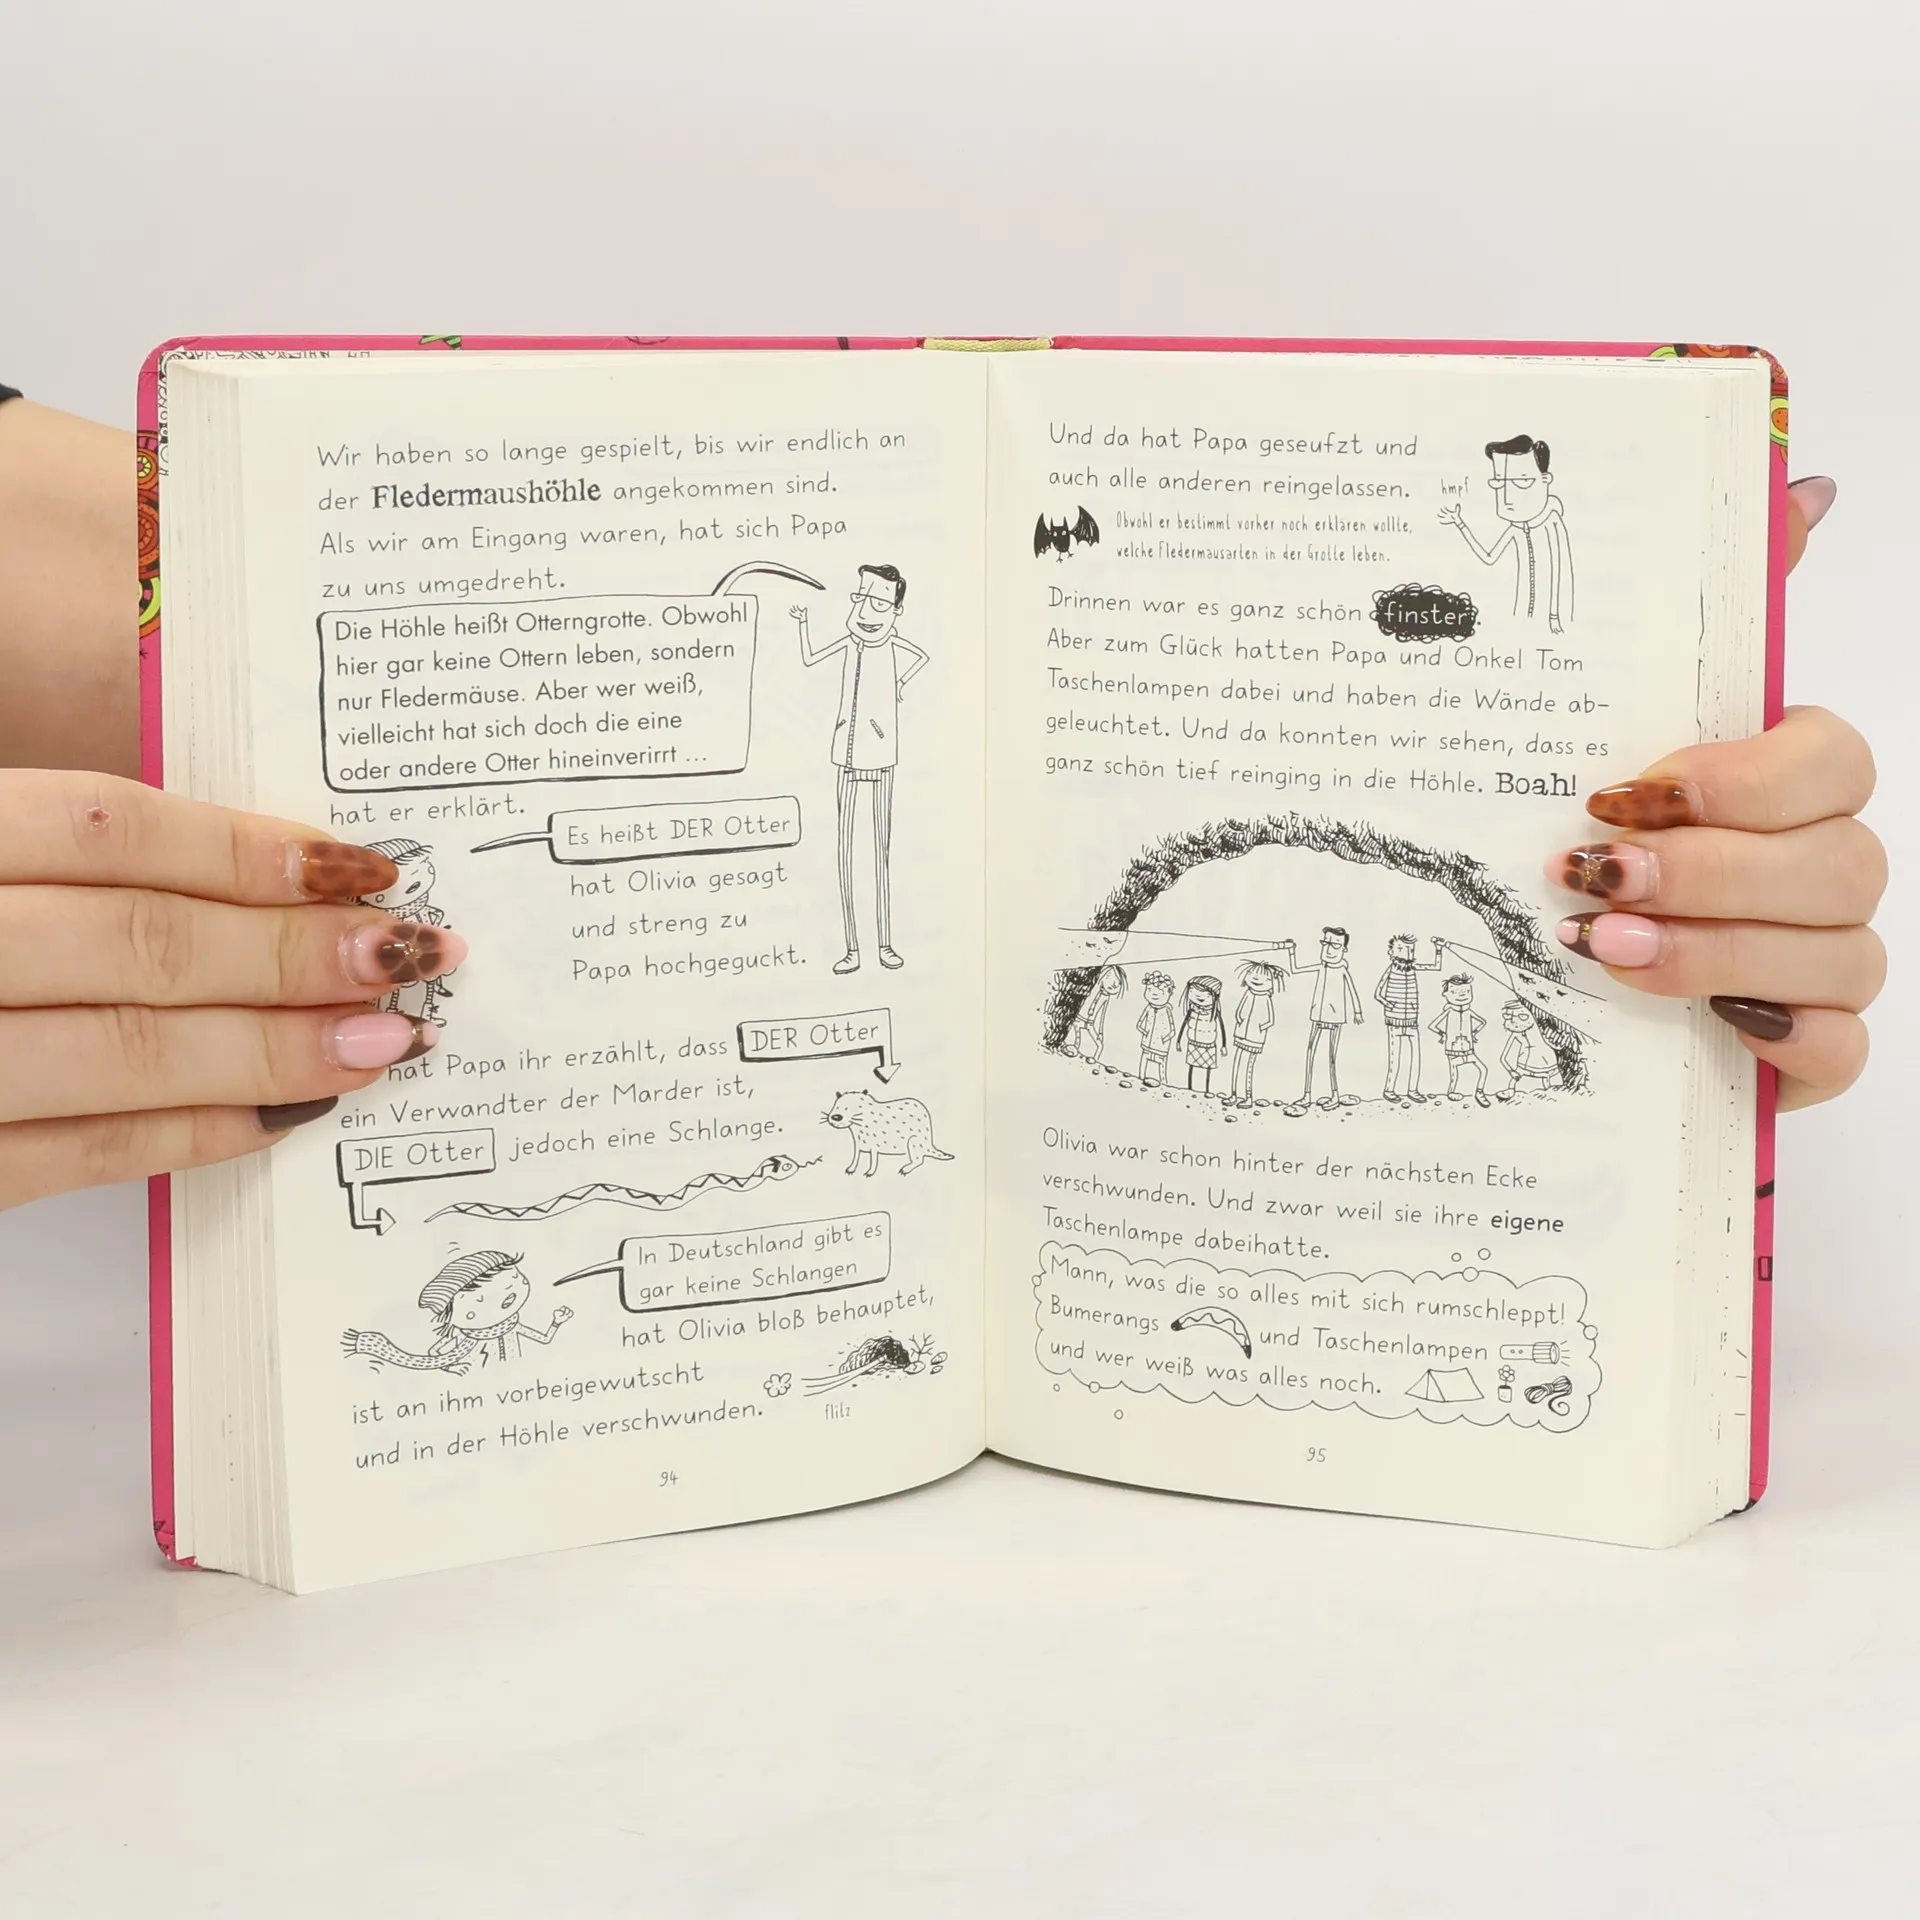 Wir haben so lange gespielt, bis wir endlich an
der Fledermaushöhle angekommen sind.
Als wir am Eingang waren, hat sich Papa
zu uns umgedreht.
Die Höhle heißt Otterngrotte. Obwohl
hier gar keine Ottern leben, sondern
nur Fledermäuse. Aber wer weiß,
vielleicht hat sich doch die eine
oder andere Otter hineinverirrt ...
hat er erklärt.
Es heißt DER Otter
hat Olivia gesagt
und streng zu
Papa hochgeguckt.
hat Papa ihr erzählt, dass DER Otter
ein Verwandter der Marder ist,
DIE Otter jedoch eine Schlange.
In Deutschland gibt es
gar keine Schlangen
hat Olivia bloß behauptet,
ist an ihm vorbeigewutscht
und in der Höhle verschwunden.
flitz
94
Und da hat Papa geseufzt und
auch alle anderen reingelassen.
hmpf
Obwohl er bestimmt vorher noch erklären wollte,
welche Fledermausarten in der Grotte leben.
Drinnen war es ganz schön finster.
Aber zum Glück hatten Papa und Onkel Tom
Taschenlampen dabei und haben die Wände ab-
geleuchtet. Und da konnten wir sehen, dass es
ganz schön tief reinging in die Höhle. Boah!
Olivia war schon hinter der nächsten Ecke
verschwunden. Und zwar weil sie ihre eigene
Taschenlampe dabeihatte.
Mann, was die so alles mit sich rumschleppt!
Bumerangs und Taschenlampen
und wer weiß was alles noch.
95